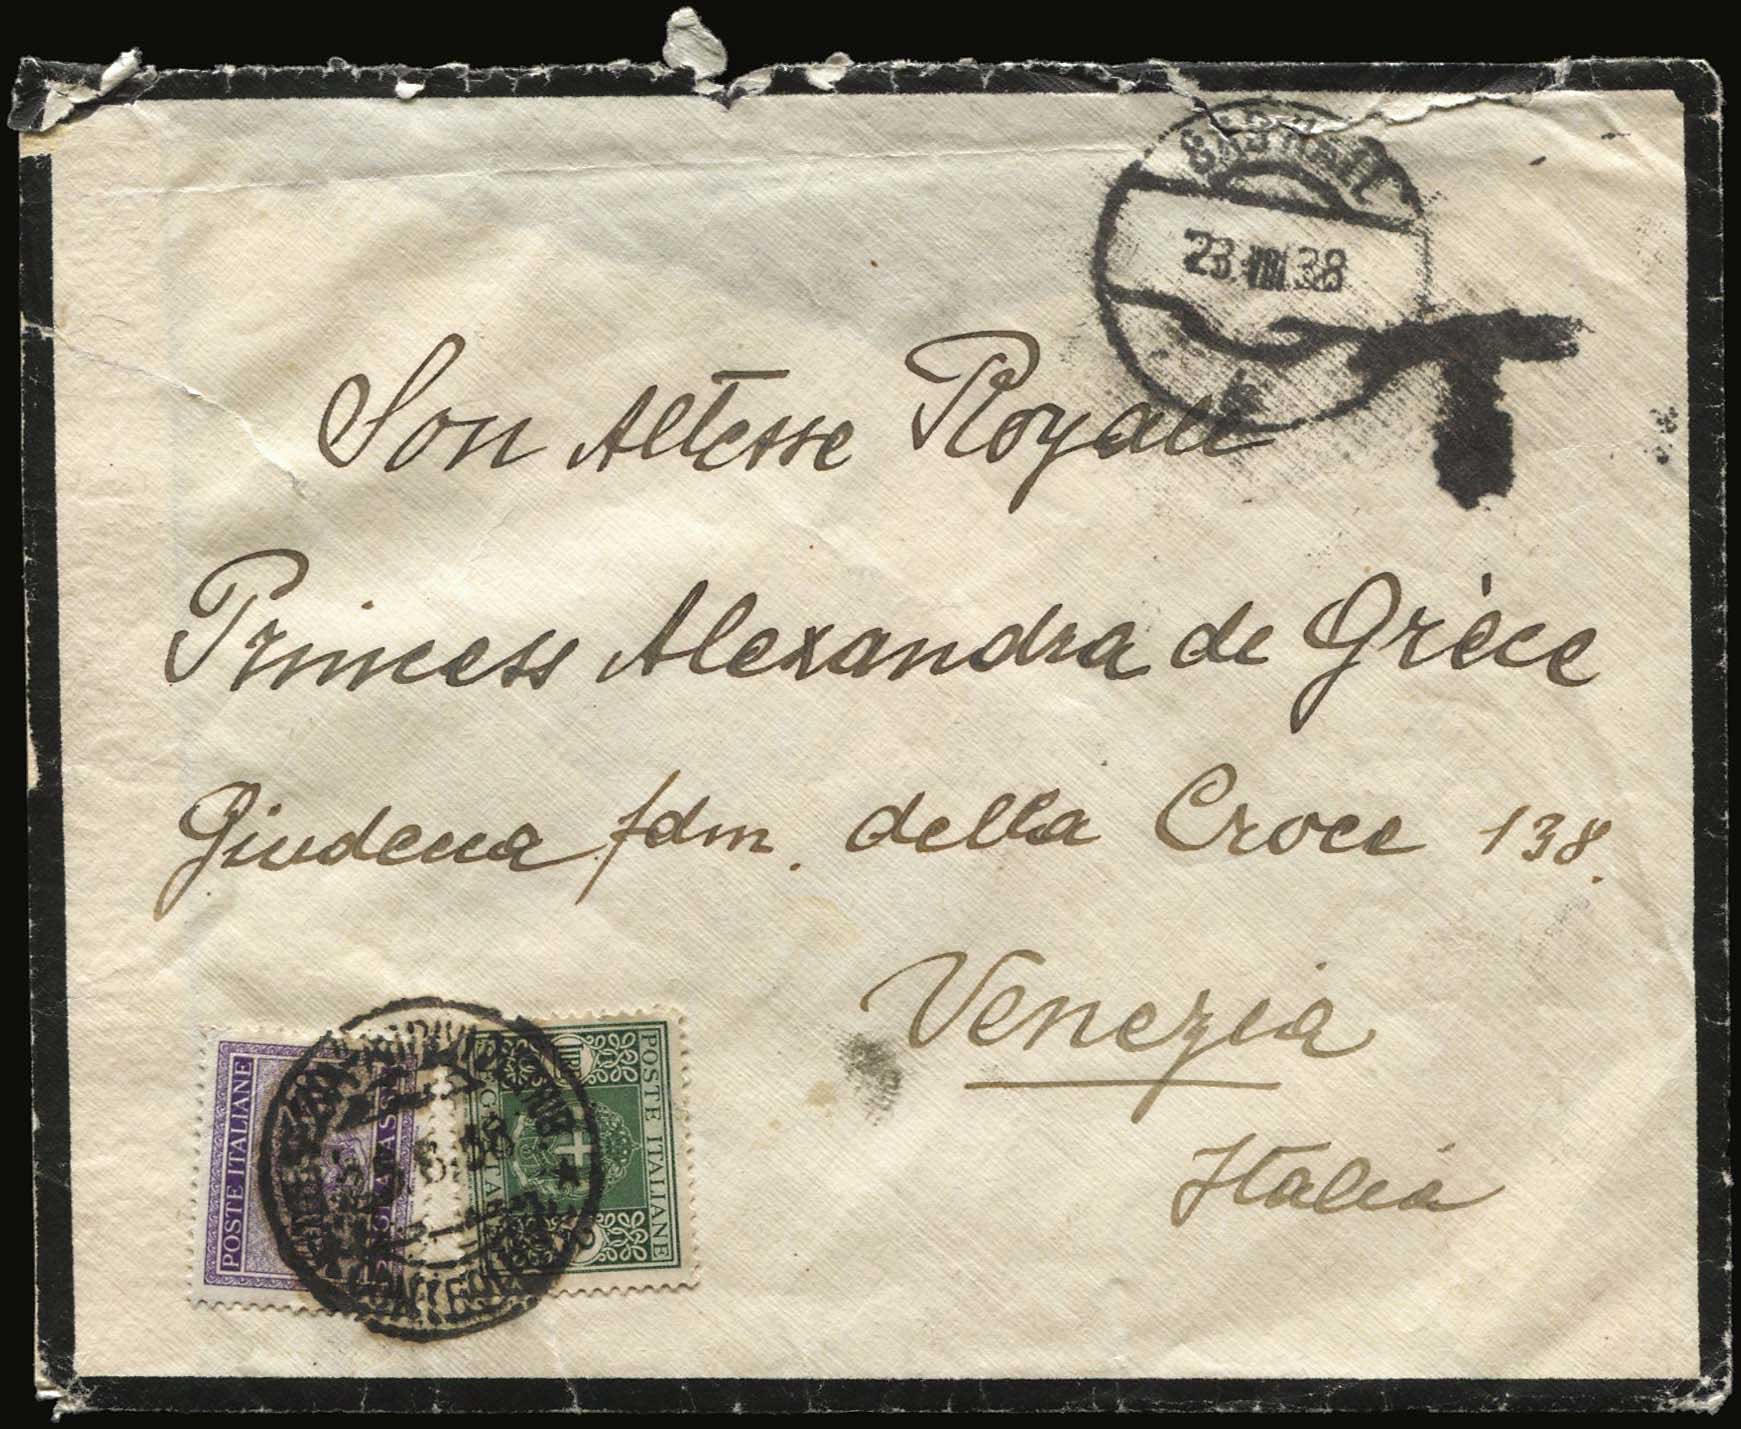 23.VIII.38
Son Altesse Royale
Princess Alexandra de Grèce
Giudecca fdm. della Croce 138.
Venezia
Italia
T
POSTE ITALIANE
POSTE ITALIANE